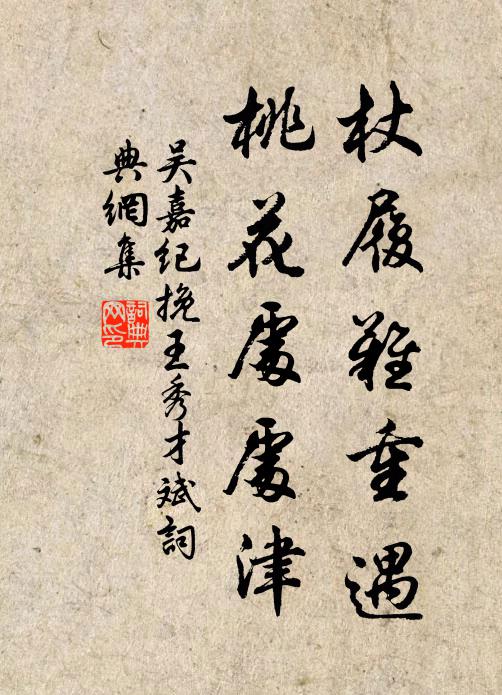 杖履難重遇
桃花處處津
吴嘉纪挽王秀才斌詞
典網集
詞典网印